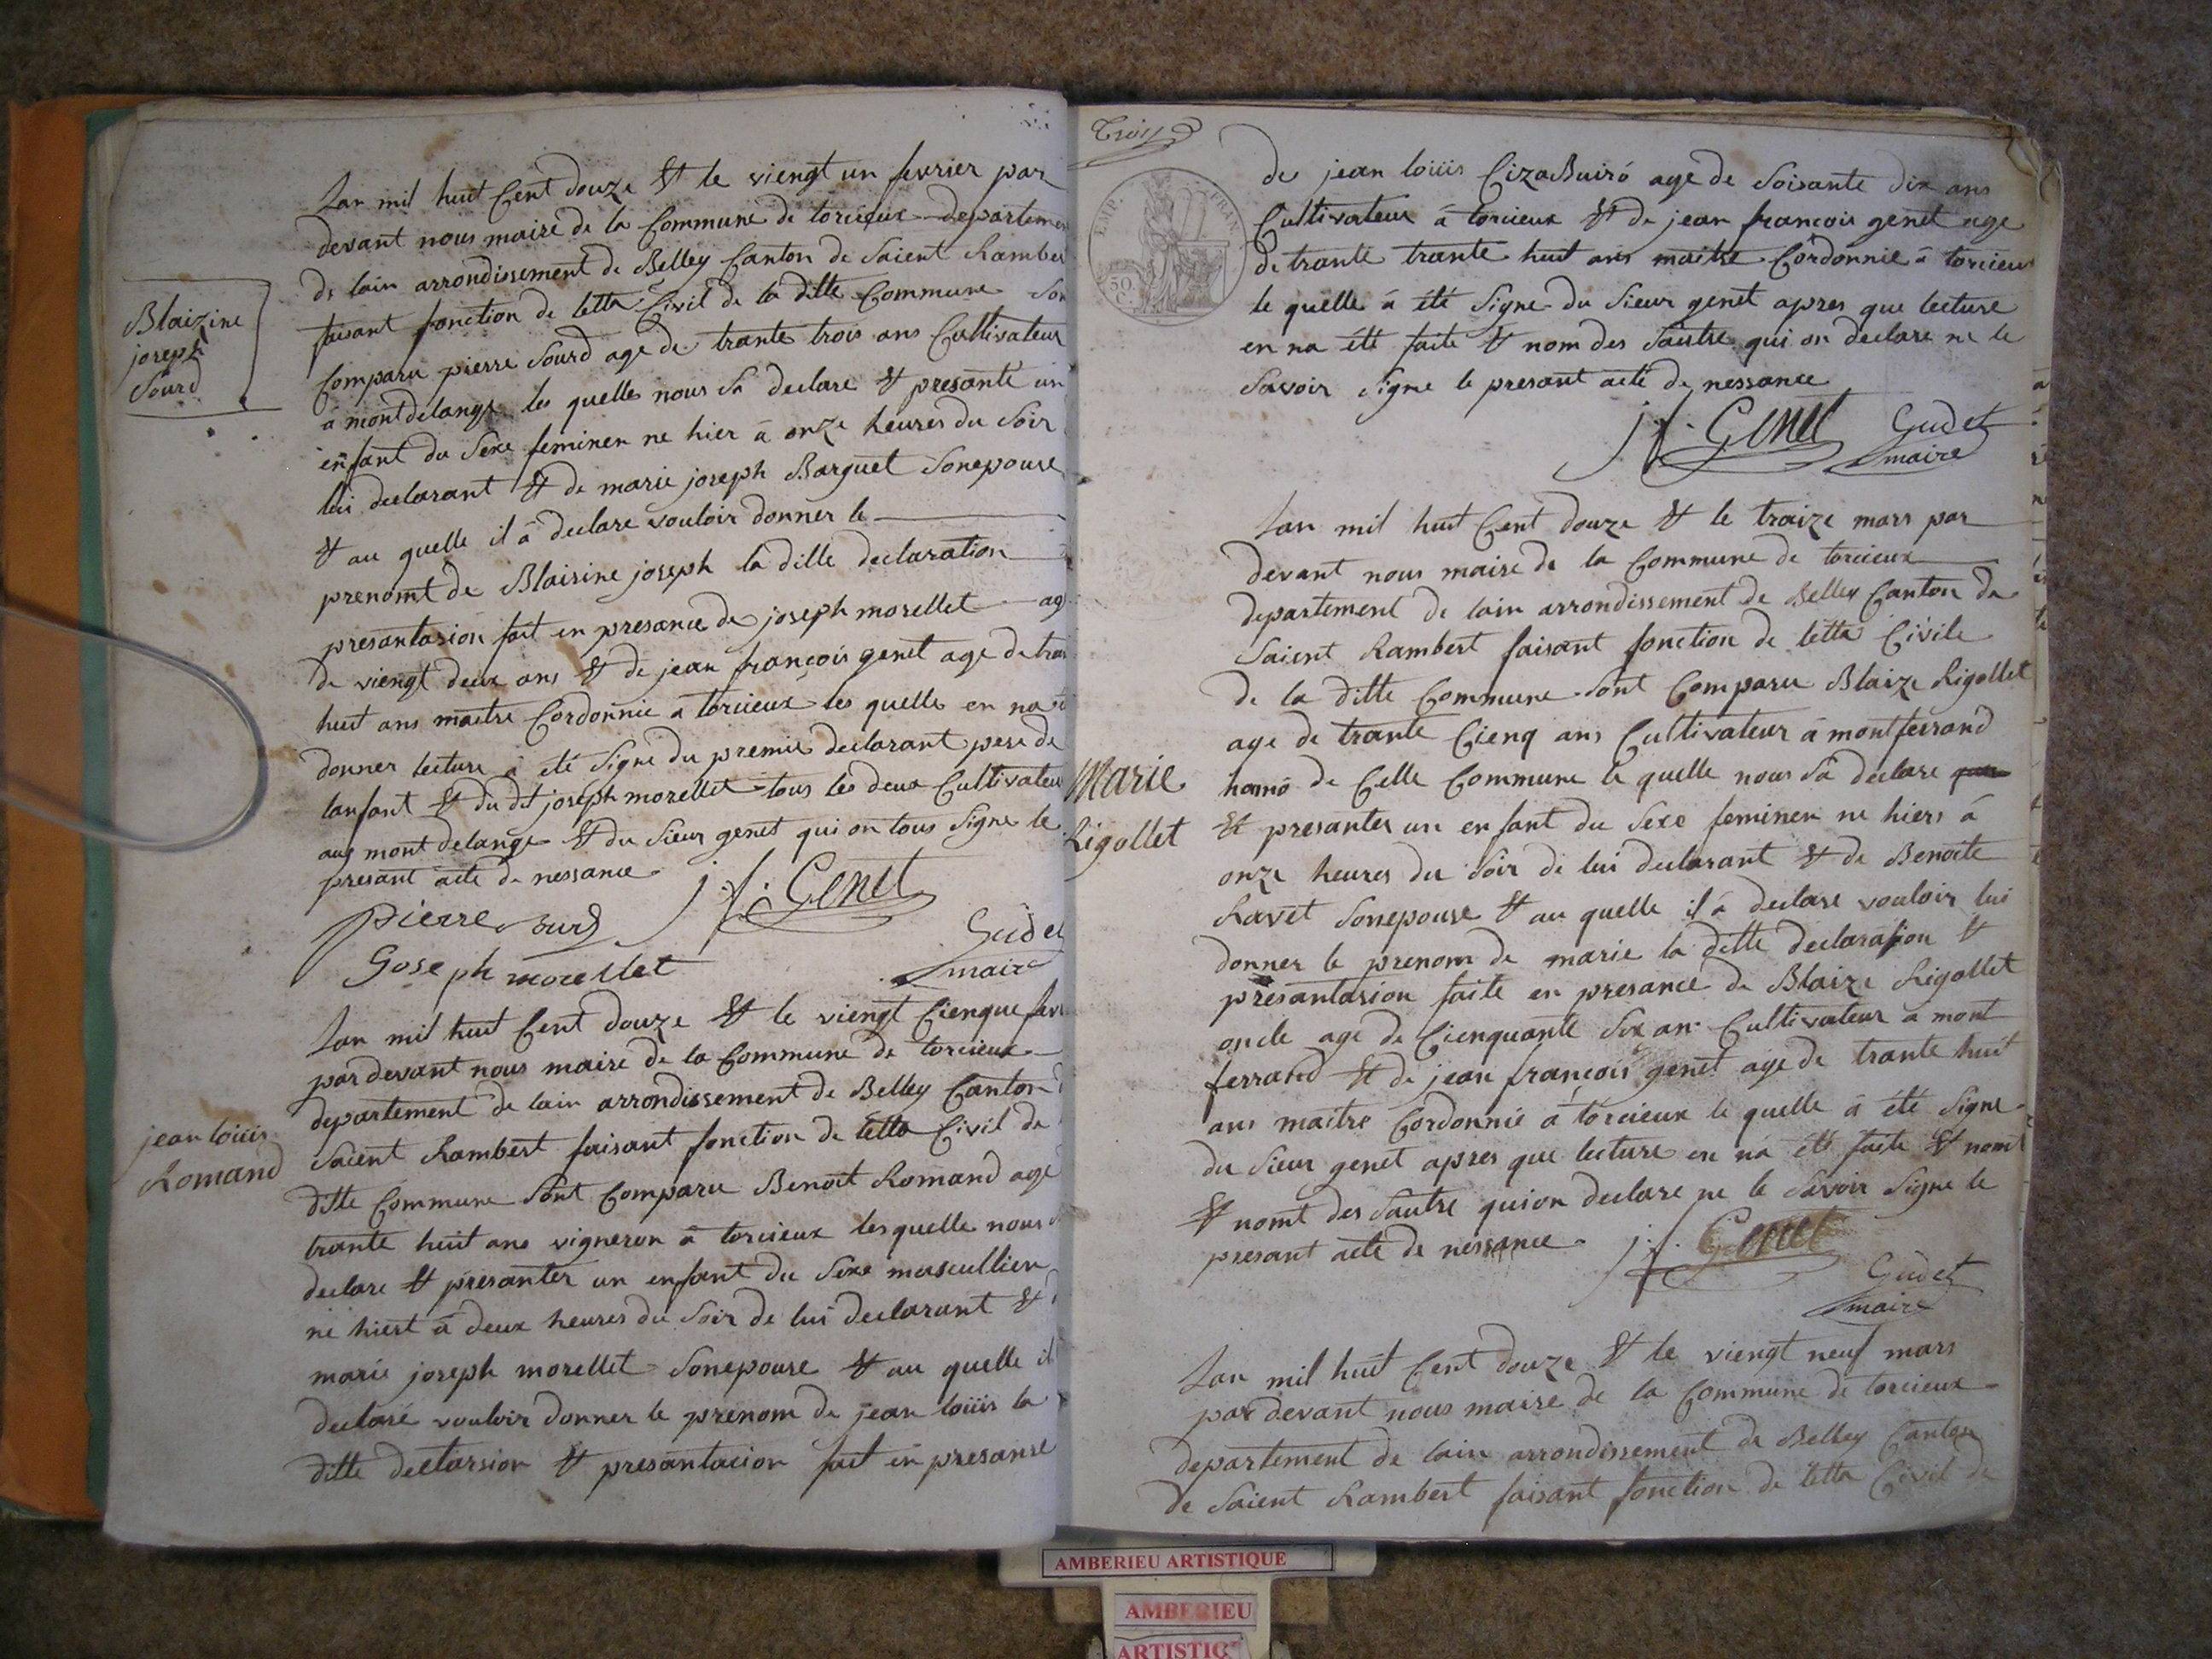 Blaizine
joseph
Sourd
Lan mil huit Cent douze & le viengt un fevrier par
devant nous maire de la Commune de torcieux departemen
de lain arrondissement de Belley Canton de Saient Ramber
faisant fonction de letta Civil de la ditte Commune Son
Comparu pierre Sourd age de trante trois ans Cultivateur
a montdelange les quelle nous sa declare & presante un
enfant du Sexe feminen ne hier à onze heures du Soir
lui declarant & de marie joseph Barguet Sonepouse
& au quelle il à declare vouloir donner le
prenomt de Blaisine joseph la ditte declaration
presantasion fait en presance de joseph morellet ag
de viengt deux ans & de jean françois genet age de tran
huit ans maitre Cordonnie a torcieux les quelle en na
donner lecture à eté Signe du premie declarant pere de
lanfant & du dt joseph morellet tous les deux Cultivateur
aux mont delange & du Sieur genet qui on tous Signe le
presant acte de nessance
j. f. Genet
pierre Sourd
Goseph morellet
Gudet
maire
jean loüis
Romand
Lan mil huit Cent douze & le viengt Cienque fevr
par devant nous maire de la Commune de torcieux
departement de lain arrondissement de Belley Canton
Saient Rambert faisant fonction de letta Civil de
ditte Commune Sont Comparu Benoit Romand age
trante huit ans vigneron à torcieux les quelle nous
declare & presanter un enfant du Sexe masculien
né hiert à deux heures du Soir de lui declarant &
marie joseph morellet Sonepouse & au quelle il
declaré vouloir donner le prenom de jean loüis la
ditte declarsion & presantacion fait en presanse
Trois
EMP. FRAN.
50
C.
de jean loüis age de Soisante dix ans
Cultivateur à torcieux & de jean françois genet age
de trante trante huit ans maitre Cordonnie à torcieux
le quelle à été Signe du Sieur genet apres que lecture
en na été faite & nom des Sautre qui on declare ne le
Savoir Signe le presant acte de nessance
j f. Genet
Gudet
maire
Marie
Rigollet
Lan mil huit Cent douze & le traize mars par
devant nous maire de la Commune de torcieux
departement de lain arrondissement de Belley Canton de
Saient Rambert faisant fonction de letta Civile
de la ditte Commune Sont Comparu Blaize Rigollet
age de trante Cienq ans Cultivateur à montferrand
hamo de Celle Commune le quelle nous sà declare
& presanter un enfant du Sexe feminen ne hiers à
onze heures du Soir de lui declarant & de Benoite
Ravet Sonepouse & au quelle il à declare vouloir lui
donner le prenom de marie la ditte declarasion &
presantasion faite en presance de Blaize Rigollet
oncle age de Cienquante Six an Cultivateur a mont
ferrand & de jean françois genet age de trante huit
ans maitre Cordonnie à torcieux le quelle à été Signe
du Sieur genet apres que lecture en nà été faite & nomt
& nomt des Sautre quion declare ne le Savoir Signe le
presant acte de nessance
j. f. Genet
Gudet
maire
Lan mil huit Cent douze & le viengt neuf mars
par devant nous maire de la Commune de torcieux
departement de lain arrondissement de Belley Canton
de Saient Rambert faisant fonction de letta Civil de
AMBERIEU ARTISTIQUE
AMBERIEU
ARTISTIQ